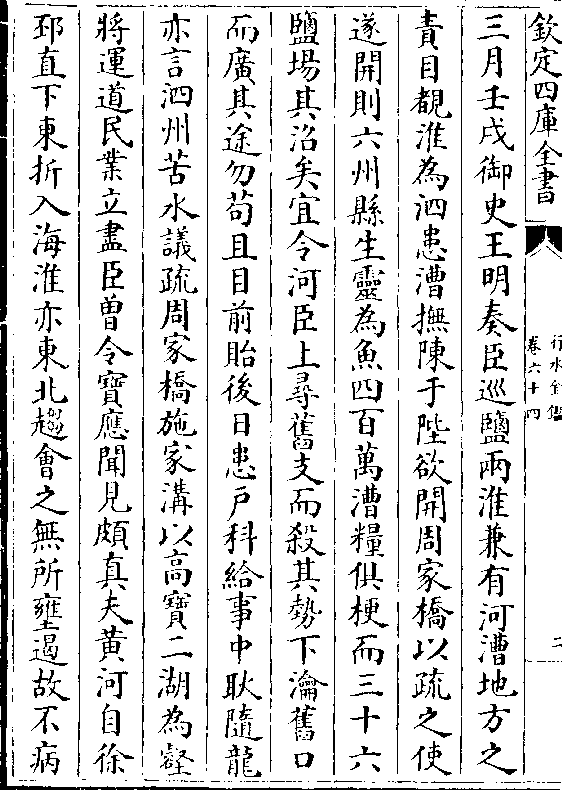 欽定四庫全書
行水金鑑
卷六十四
二
三月壬戌御史王明奏臣巡鹽兩淮兼有河漕地方之
責目覩淮為泗患漕撫陳于陛欲開周家橋以疏之使
遂開則六州縣生靈為魚四百萬漕糧俱梗而三十六
鹽場其沼矣宜令河臣上尋舊支而殺其勢下瀹舊口
而廣其途勿苟且目前貽後日患戶科給事中耿隨龍
亦言泗州苦水議疏周家橋施家溝以高寶二湖為壑
將運道民業立盡臣曽令寶應聞見頗真夫黄河自徐
邳直下東折入海淮亦東北趨會之無所壅遏故不病